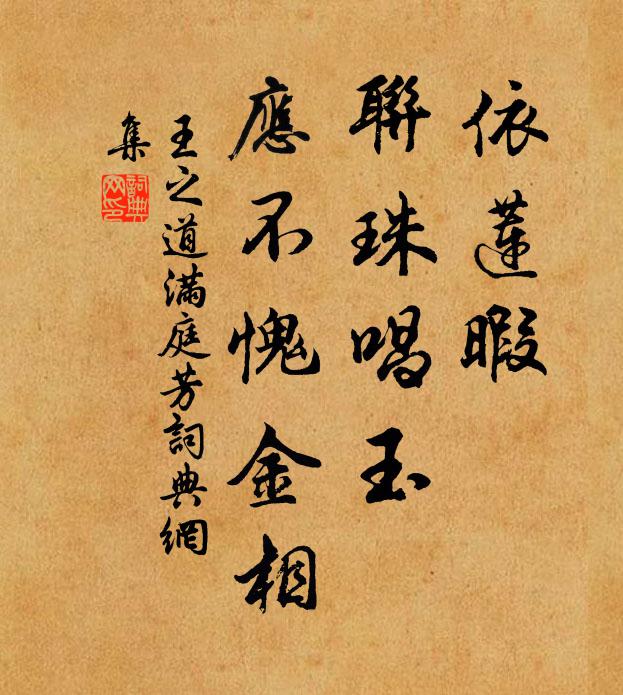 依蓮暇
聯珠唱玉
應不愧金相
王之道滿庭芳詞典網
集
詞典
网印